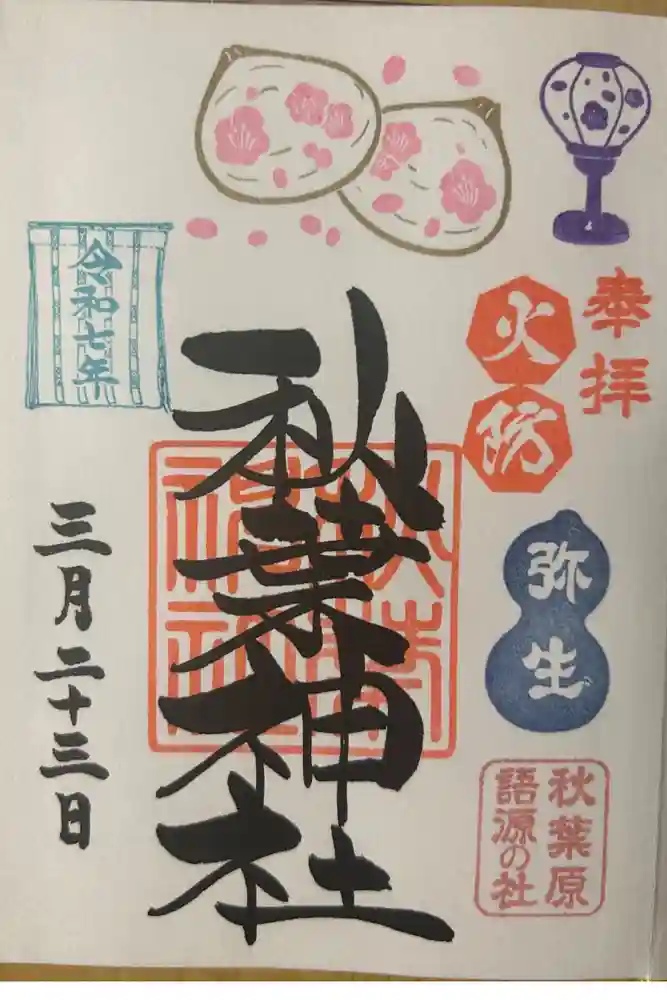 奉拝
火防
弥生
秋葉原
語源の社
秋葉神社
令和七年
三月二十三日